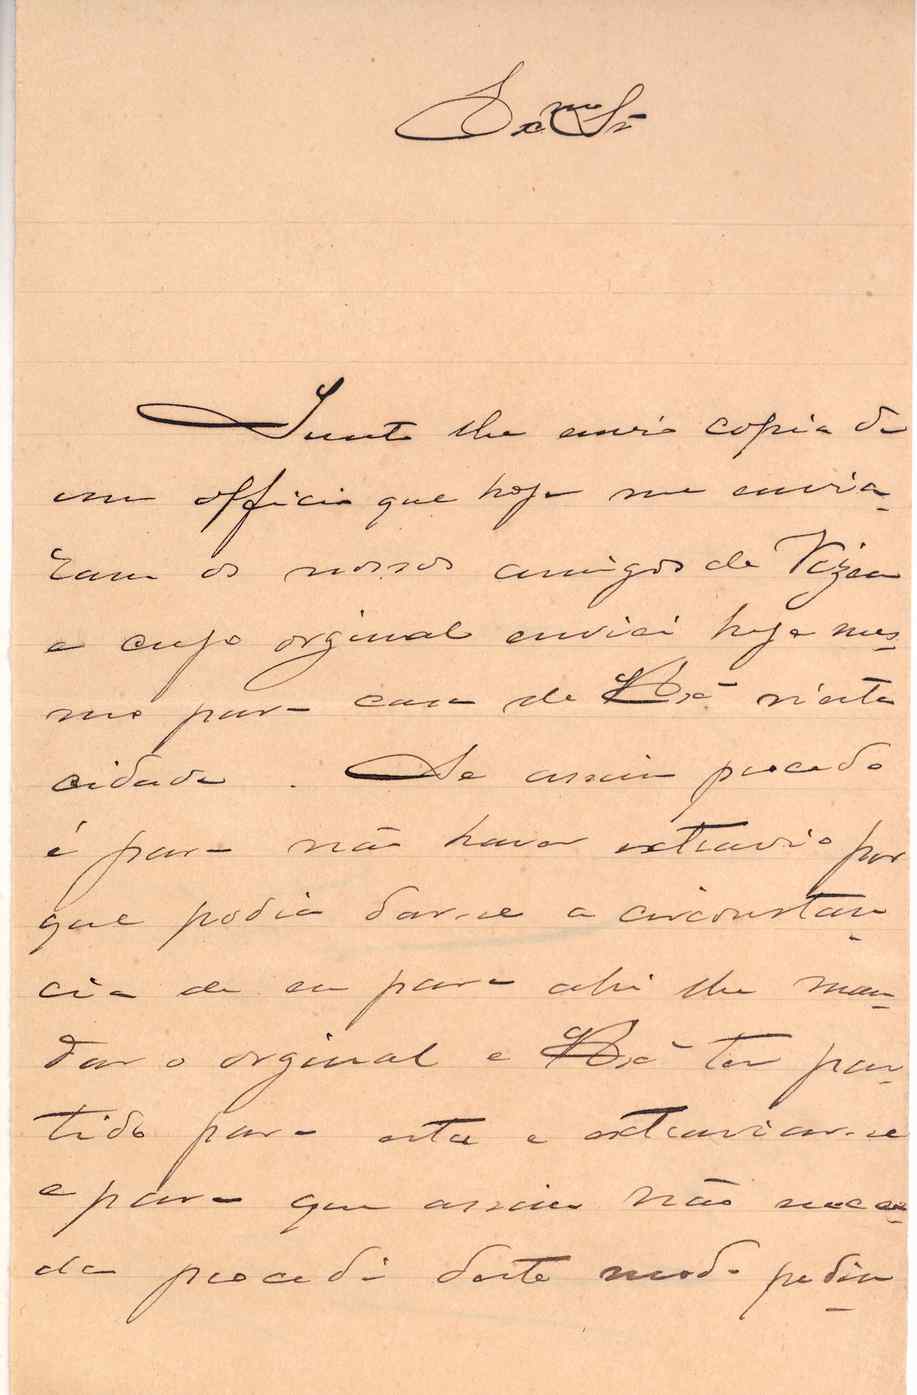 Exmo Sr
Junto lhe envio copia de
um officio que hoje me envia-
ram os nossos amigos de Vizeu
e cujo orginal enviei hoje mes-
mo para casa de VExª nesta
cidade. Se assim procedo
é para não haver extravio por
que podia dar-se a circonstan-
cia de eu para ahi lhe man-
dar o orginal e VExª ter par-
tido para esta e extraviar-se
e para que assim não suce-
da procedi deste modo pedin-